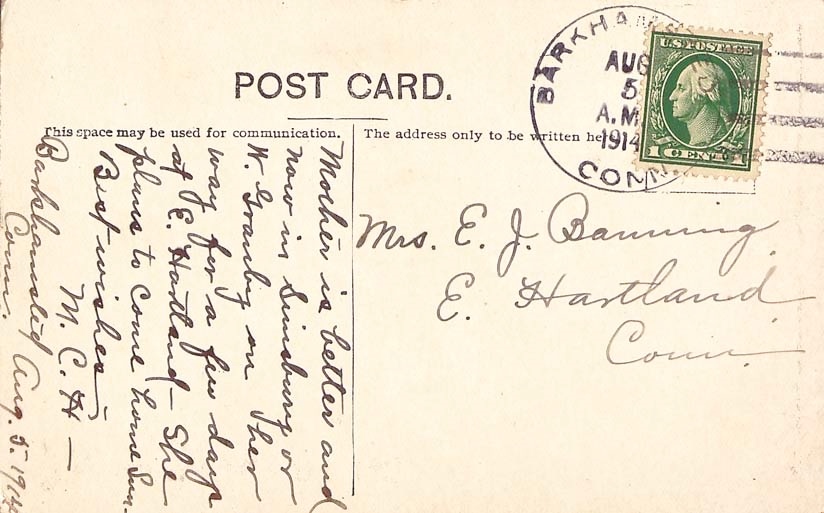 POST CARD.
This space may be used for communication.
The address only to be written he
BARKHAM
AUG
5
A.M.
1914
CONN.
U.S. POSTAGE
1 CENT 1
Mrs. E. J. Banning
E. Hartland
Conn.
Mother is better and
now in Simsbury or
W. Granby on her
way for a few days
at E. Hartland - She
plans to come home Sun.
Best wishes
M. C. H -
Barkhamsted Aug. 5. 1914
Conn.